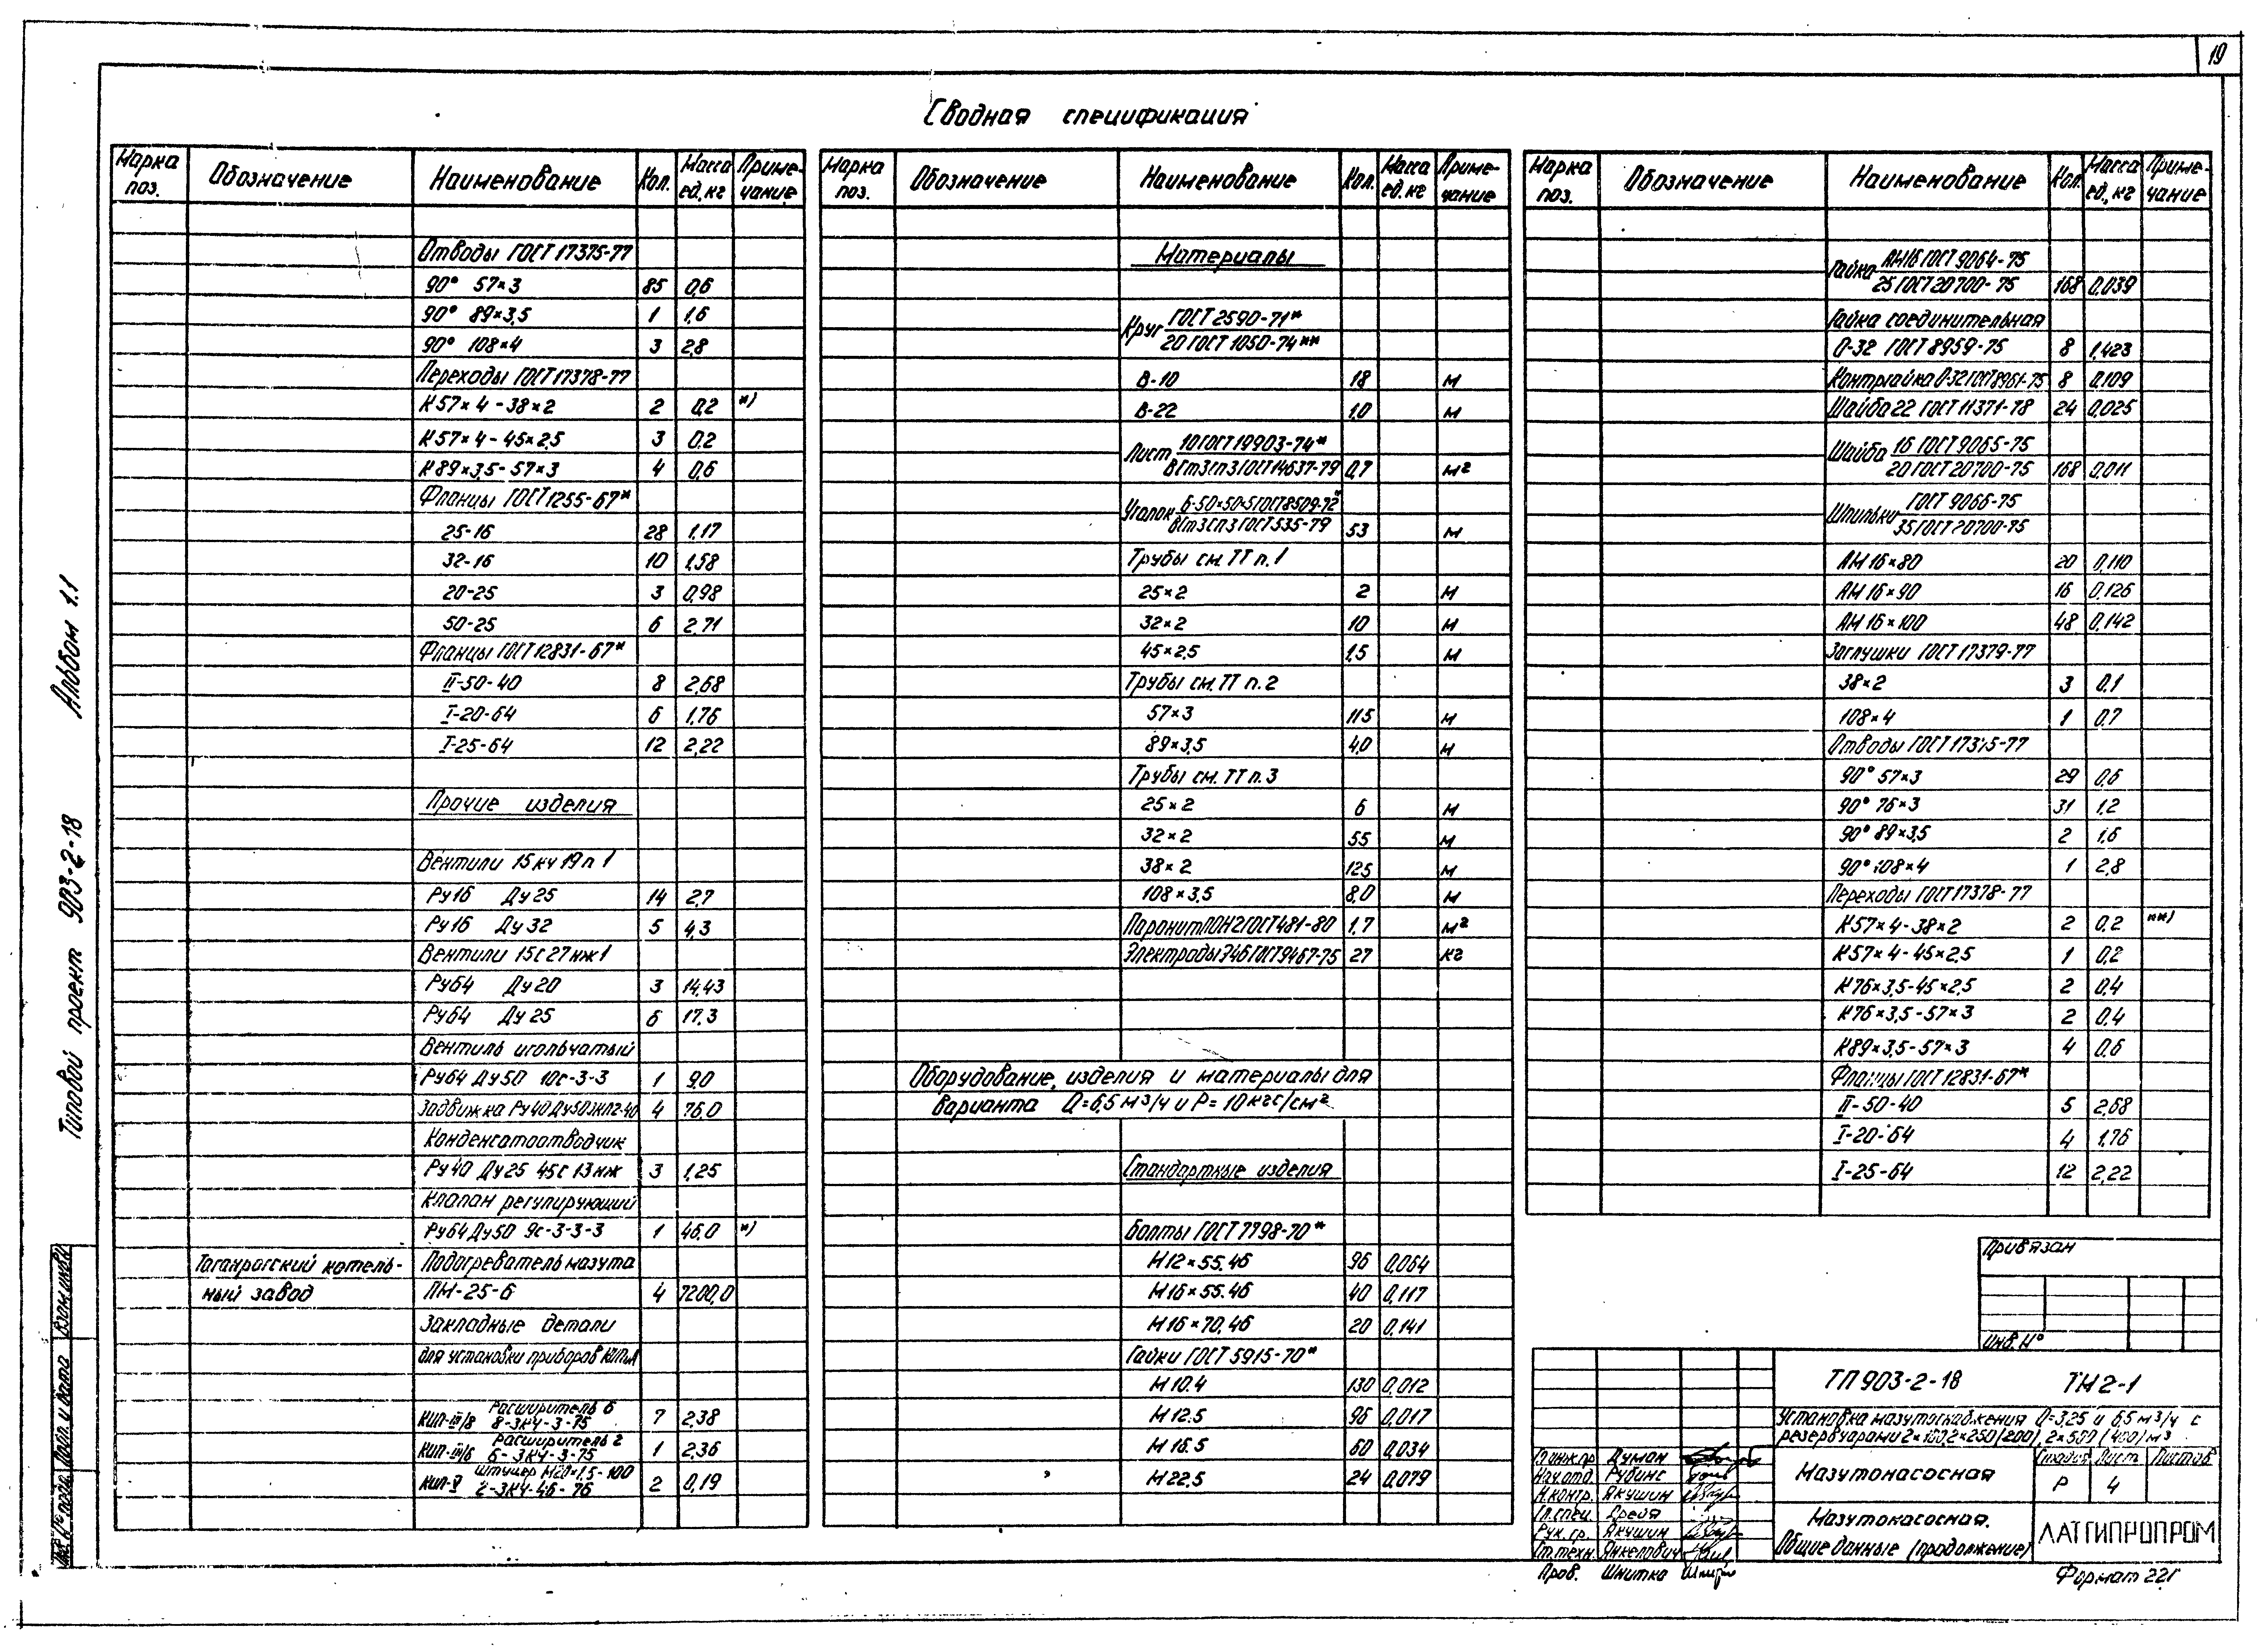 19
Сводная спецификация
Марка поз. Обозначение Наименование Кол. Масса ед. кг Примечание
Отводы ГОСТ 17375-77
90° 57×3 85 0,6
90° 89×3,5 1 1,6
90° 108×4 3 2,8
Переходы ГОСТ 17378-77
К 57×4-38×2 2 0,2 *)
К 57×4-45×2,5 3 0,2
К 89×3,5-57×3 4 0,6
Фланцы ГОСТ 1255-67*
25-16 28 1,17
32-16 10 1,58
20-25 3 0,98
50-25 6 2,71
Фланцы ГОСТ 12831-67*
II-50-40 8 2,68
I-20-64 6 1,76
I-25-64 12 2,22
Прочие изделия
Вентили 15кч19п1
Ру16 Ду25 14 2,7
Ру16 Ду32 5 4,3
Вентили 15с27нж1
Ру64 Ду20 3 14,43
Ру64 Ду25 6 17,3
Вентиль игольчатый
Ру64 Ду50 10с-3-3 1 9,0
Задвижка Ру40 Ду50 ЗКЛ2-40 4 76,0
Конденсатоотводчик
Ру40 Ду25 45с13нж 3 1,25
Клапан регулирующий
Ру64 Ду50 9с-3-3-3 1 46,0 *)
Таганрогский котель- Подогреватель мазута
ный завод ПМ-25-6 4 7200,0
Закладные детали
для установки приборов КИПиА
Расширитель б
КИП-III/8 8-ЗКЧ-3-75 7 2,38
Расширитель 2
КИП-III/6 6-ЗКЧ-3-75 1 2,36
штуцер М20×1,5-100
КИП-V 2-ЗКЧ-46-76 2 0,19
Марка поз. Обозначение Наименование Кол. Масса ед. кг Примечание
Материалы
Круг ГОСТ 2590-71*
20 ГОСТ 1050-74**
В-10 18 м
В-22 1,0 м
Лист 10 ГОСТ 19903-74*
ВСт3сп3 ГОСТ 14637-79 0,7 м²
Уголок Б-50×50×5 ГОСТ 8509-72*
ВСт3сп3 ГОСТ 535-79 53 м
Трубы см. ТТ п. 1
25×2 2 м
32×2 10 м
45×2,5 1,5 м
Трубы см. ТТ п. 2
57×3 115 м
89×3,5 4,0 м
Трубы см. ТТ п. 3
25×2 6 м
32×2 55 м
38×2 125 м
108×3,5 8,0 м
Паронит ПОН2 ГОСТ 481-80 1,7 м²
Электроды Э46 ГОСТ 9467-75 27 кг
Оборудование, изделия и материалы для
варианта Q=6,5 м³/ч и Р=10 кгс/см²
Стандартные изделия
Болты ГОСТ 7798-70*
М12×55.46 96 0,064
М16×55.46 40 0,117
М16×70.46 20 0,141
Гайки ГОСТ 5915-70*
М10.4 130 0,012
М12.5 96 0,017
М16.5 60 0,034
М22.5 24 0,079
Марка поз. Обозначение Наименование Кол. Масса ед., кг Примечание
Гайка АМ16 ГОСТ 9064-75
25 ГОСТ 20700-75 168 0,039
Гайка соединительная
О-32 ГОСТ 8959-75 8 1,423
Контргайка О-32 ГОСТ 8961-75 8 0,109
Шайба 22 ГОСТ 11371-78 24 0,025
Шайба 16 ГОСТ 9065-75
20 ГОСТ 20700-75 168 0,011
Шпильки ГОСТ 9066-75
35 ГОСТ 20700-75
АМ 16×80 20 0,110
АМ 16×90 16 0,126
АМ 16×100 48 0,142
Заглушки ГОСТ 17379-77
38×2 3 0,1
108×4 1 0,7
Отводы ГОСТ 17375-77
90° 57×3 29 0,6
90° 76×3 31 1,2
90° 89×3,5 2 1,6
90° 108×4 1 2,8
Переходы ГОСТ 17378-77
К57×4-38×2 2 0,2 **)
К57×4-45×2,5 1 0,2
К76×3,5-45×2,5 2 0,4
К76×3,5-57×3 2 0,4
К89×3,5-57×3 4 0,6
Фланцы ГОСТ 12831-67*
II-50-40 5 2,68
I-20-64 4 1,76
I-25-64 12 2,22
Привязан
Инв. №
ТП 903-2-18 ТМ2-1
Установка мазутоснабжения Q=3,25 и 6,5 м³/ч с
резервуарами 2×100, 2×250 (200), 2×500 (400) м³
Гл.инж.пр. Думан
Нач.отд. Рубинс
Н.контр. Якушин
Гл.спец. Дрейя
Рук. гр. Якушин
Ст.техн. Янкелович
Пров. Шнитка
Мазутонасосная
Стадия Лист Листов
Р 4
Мазутонасосная.
Общие данные (продолжение)
ЛАТГИПРОПРОМ
Формат 22г
Типовой проект 903-2-18 Альбом 1.1
Инв. № подл. Подп. и дата Взам. инв. №